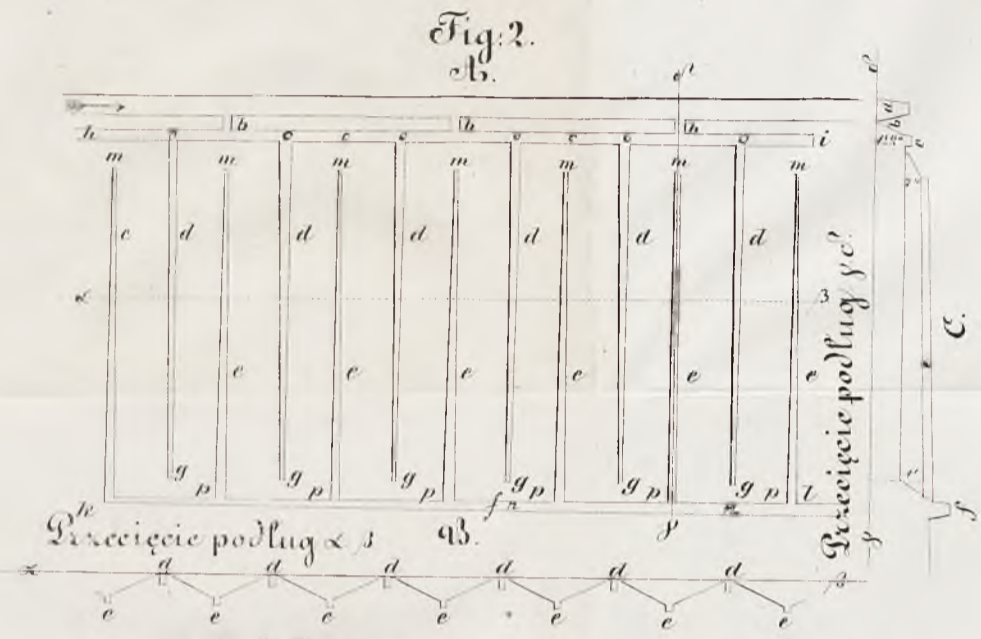 Fig: 2.
A.
h b b b b i
o o c o o c o o
m m m m m m m
c d d d d d d
α β
e e e e e e
g p g p g p g p g p g p l
k f n n γ
Przecięcie podług α β B.
d d d d d d
e e e e e e e
Przecięcie podług γ δ.
C.
a
b
c
e
f